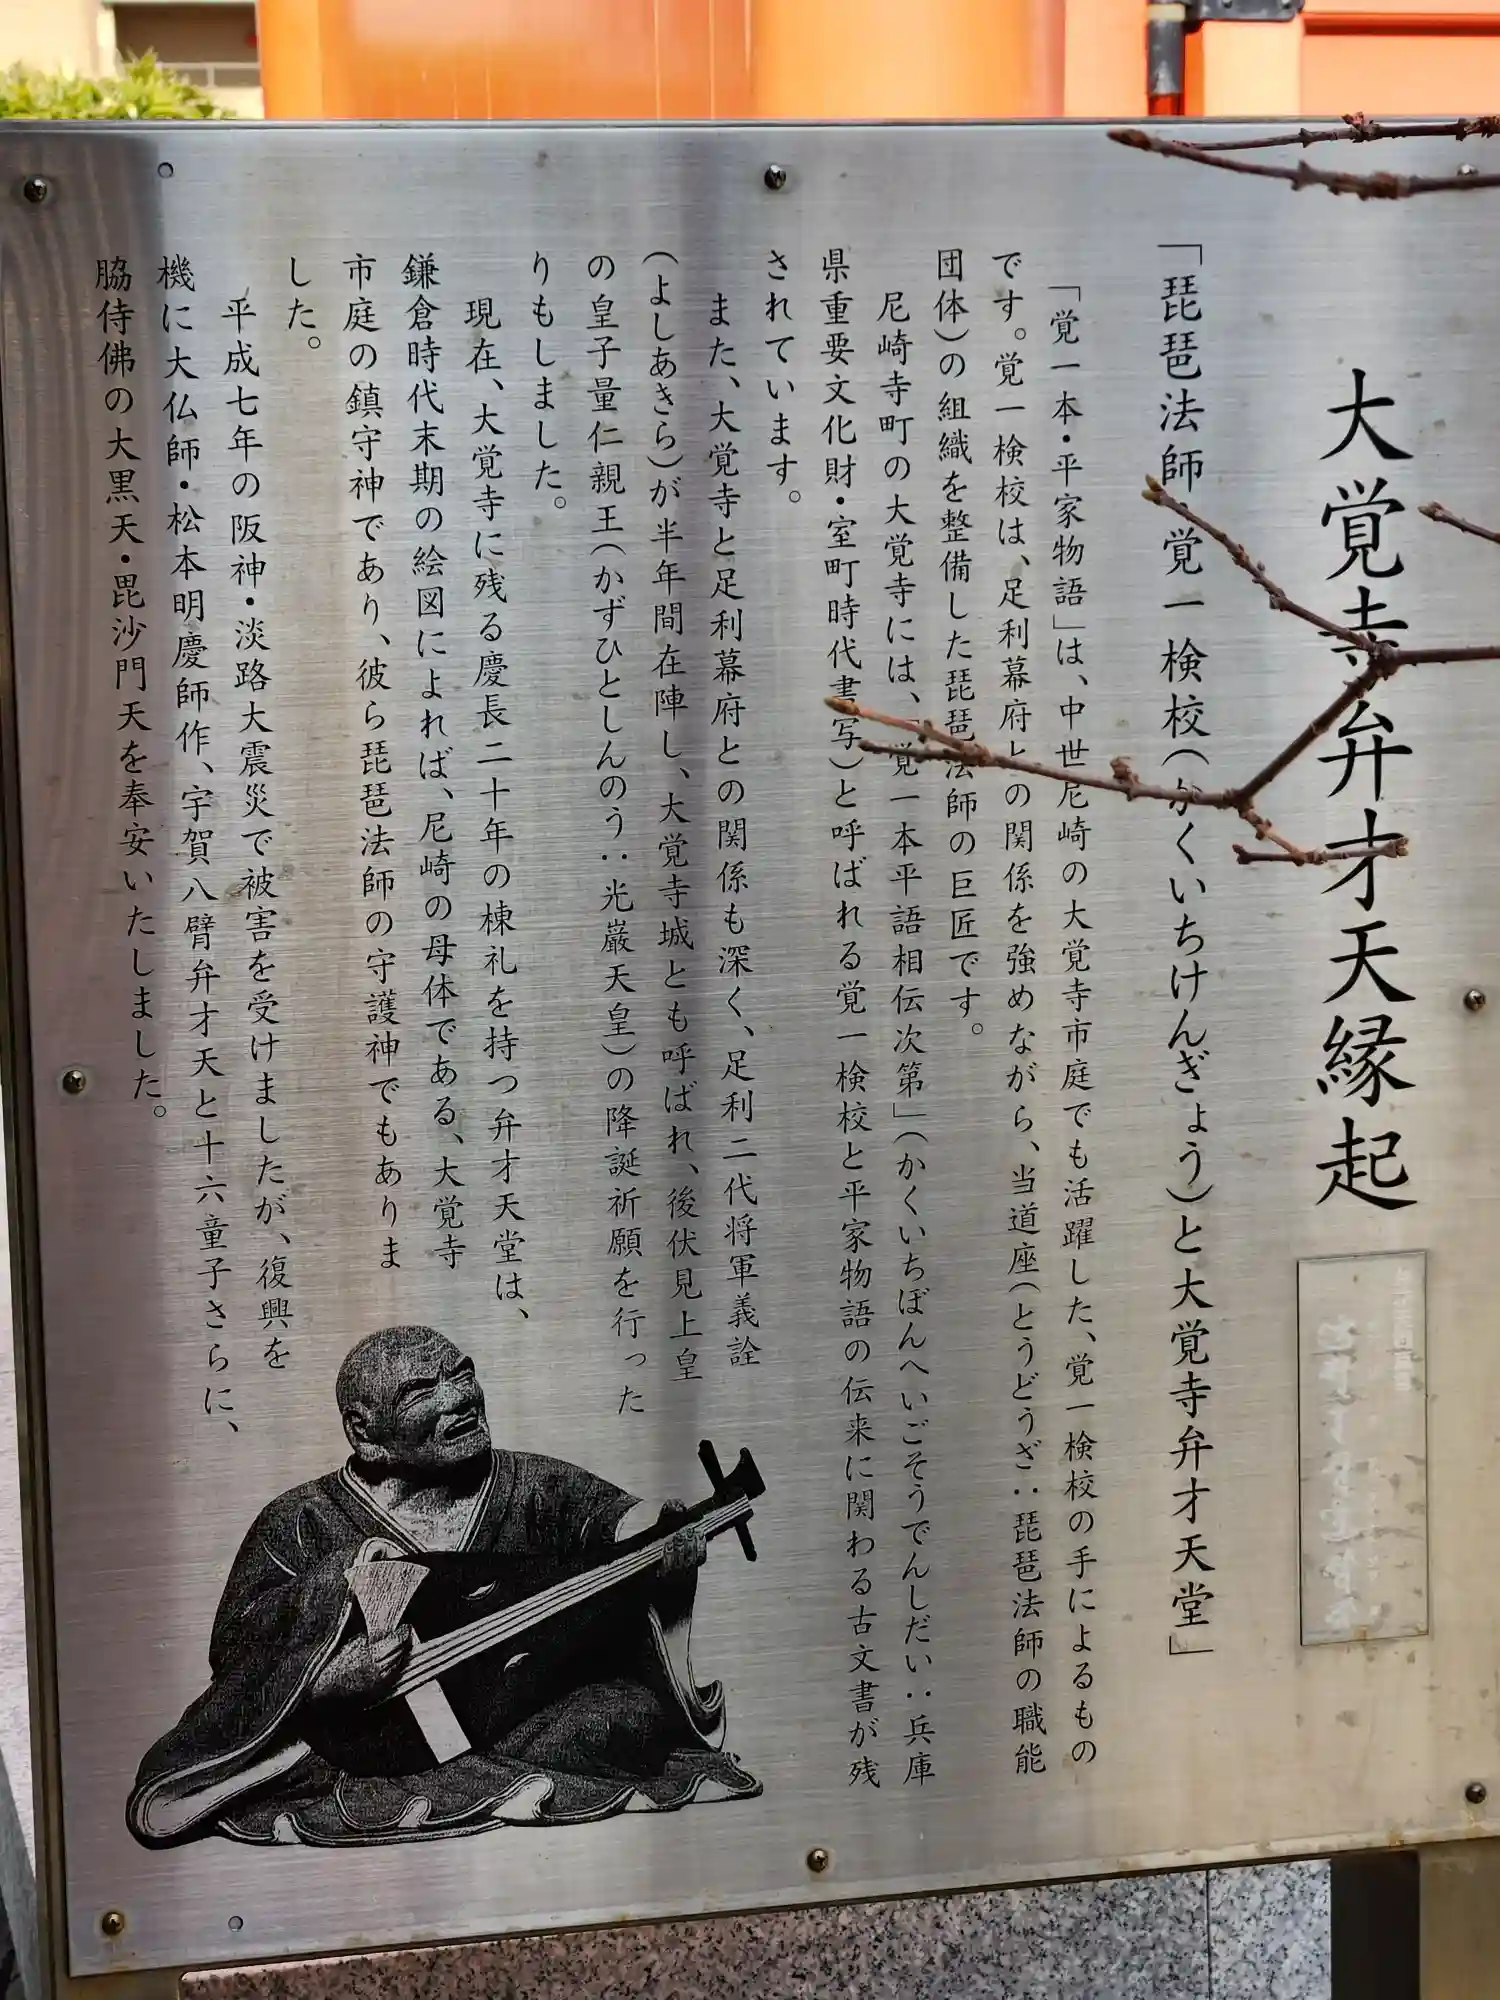 大覚寺弁才天縁起
「琵琶法師 覚一検校(かくいちけんぎょう)と大覚寺弁才天堂」
「覚一本・平家物語」は、中世尼崎の大覚寺市庭でも活躍した、覚一検校の手によるもの
です。覚一検校は、足利幕府との関係を強めながら、当道座(とうどうざ:琵琶法師の職能
団体)の組織を整備した琵琶法師の巨匠です。
尼崎寺町の大覚寺には、「覚一本平語相伝次第」(かくいちぼんへいごそうでんしだい:兵庫
県重要文化財・室町時代書写)と呼ばれる覚一検校と平家物語の伝来に関わる古文書が残
されています。
また、大覚寺と足利幕府との関係も深く、足利二代将軍義詮
(よしあきら)が半年間在陣し、大覚寺城とも呼ばれ、後伏見上皇
の皇子量仁親王(かずひとしんのう:光厳天皇)の降誕祈願を行った
りもしました。
現在、大覚寺に残る慶長二十年の棟札を持つ弁才天堂は、
鎌倉時代末期の絵図によれば、尼崎の母体である、大覚寺
市庭の鎮守神であり、彼ら琵琶法師の守護神でもありま
した。
平成七年の阪神・淡路大震災で被害を受けましたが、復興を
機に大仏師・松本明慶師作、宇賀八臂弁才天と十六童子さらに、
脇侍佛の大黒天・毘沙門天を奉安いたしました。